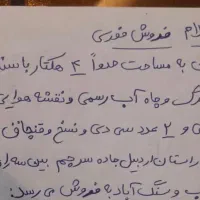 فروش فوری
به مساحت حدوداً ۴ هکتار با سند
و چاه آب رسمی و نقشه هوایی
و ۲ عدد سی دی و نسخ و قنچاق
استان اردبیل جاده سرچم بین سه راه
و سنگ آباد به فروش می رسد: